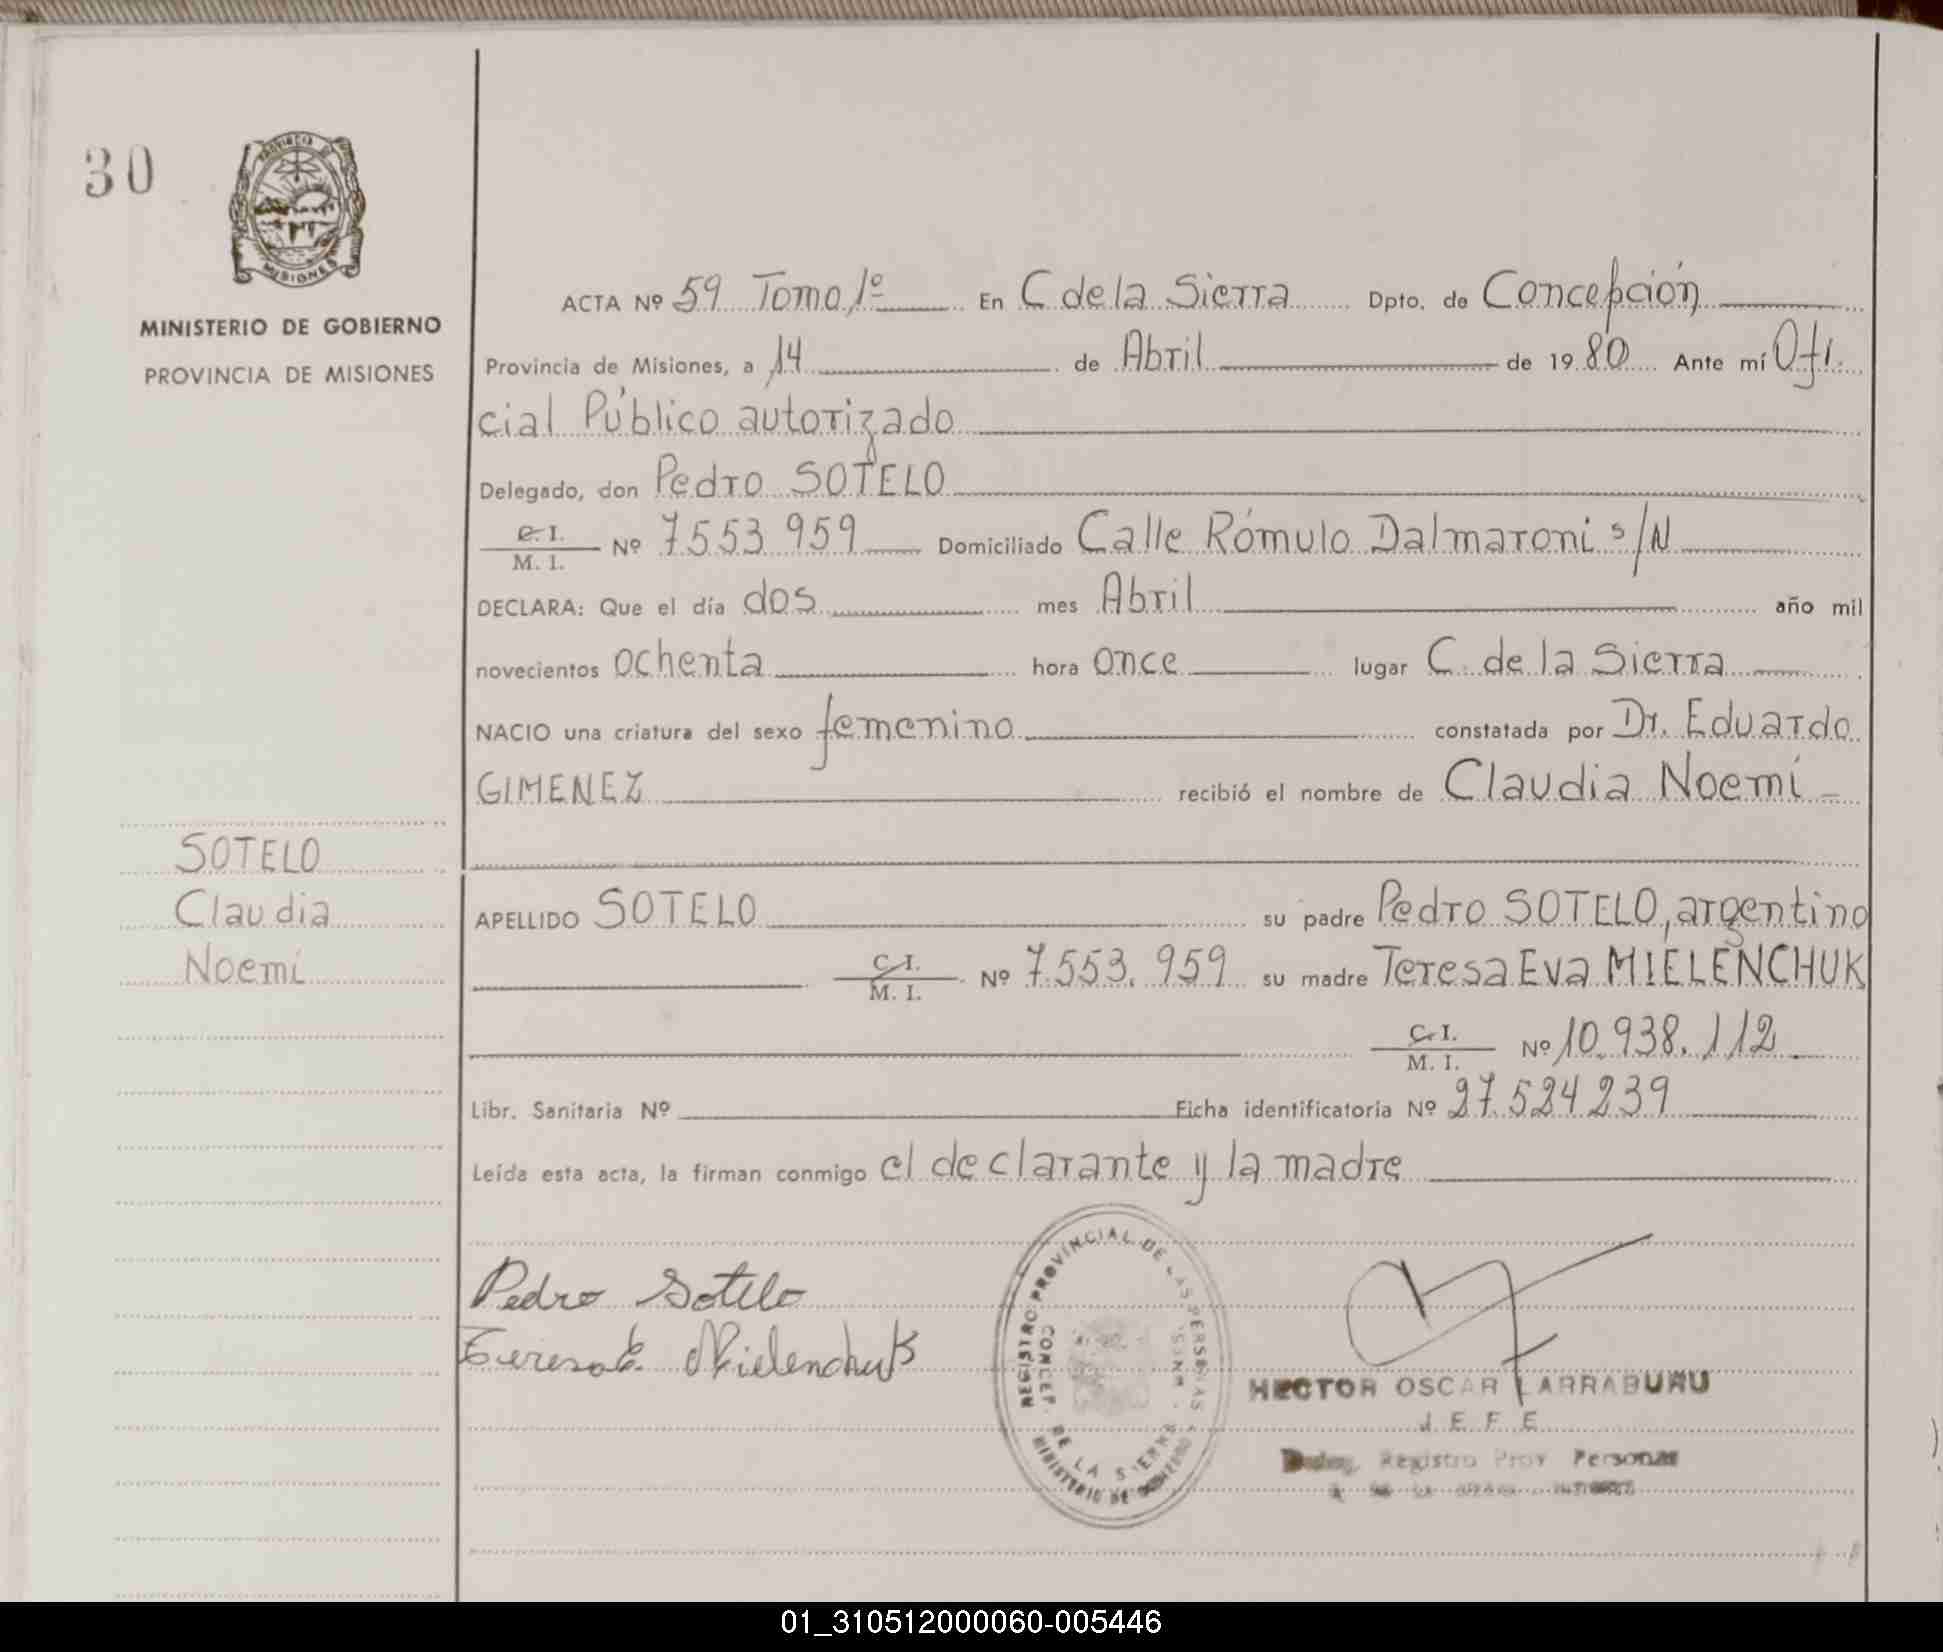 30
PROVINCIA DE
MISIONES
MINISTERIO DE GOBIERNO
PROVINCIA DE MISIONES
ACTA Nº 59 Tomo 1º En C de la Sierra Dpto. de Concepción
Provincia de Misiones, a 14 de Abril de 1980 Ante mí Ofi.
cial Público autorizado
Delegado, don Pedro SOTELO
C. I.
M. I.
Nº 7553 959 Domiciliado Calle Rómulo Dalmaroni s/N
DECLARA: Que el día dos mes Abril año mil
novecientos ochenta hora once lugar C. de la Sierra
NACIO una criatura del sexo femenino constatada por Dr. Eduardo
GIMENEZ recibió el nombre de Claudia Noemí
SOTELO
Claudia
Noemí
APELLIDO SOTELO su padre Pedro SOTELO, argentino
C. I.
M. I.
Nº 7.553.959 su madre Teresa Eva MIELENCHUK
C. I.
M. I.
Nº 10.938.112
Libr. Sanitaria Nº Ficha identificatoria Nº 27.524239
Leída esta acta, la firman conmigo el declarante y la madre
Pedro Sotelo
Teresa E. Mielenchuk
REGISTRO PROVINCIAL DE LAS PERSONAS
CONCEP. DE LA SIERRA
MINISTERIO DE GOBIERNO
HECTOR OSCAR LARRABURU
JEFE
Deleg. Registro Prov Personas
01_310512000060-005446